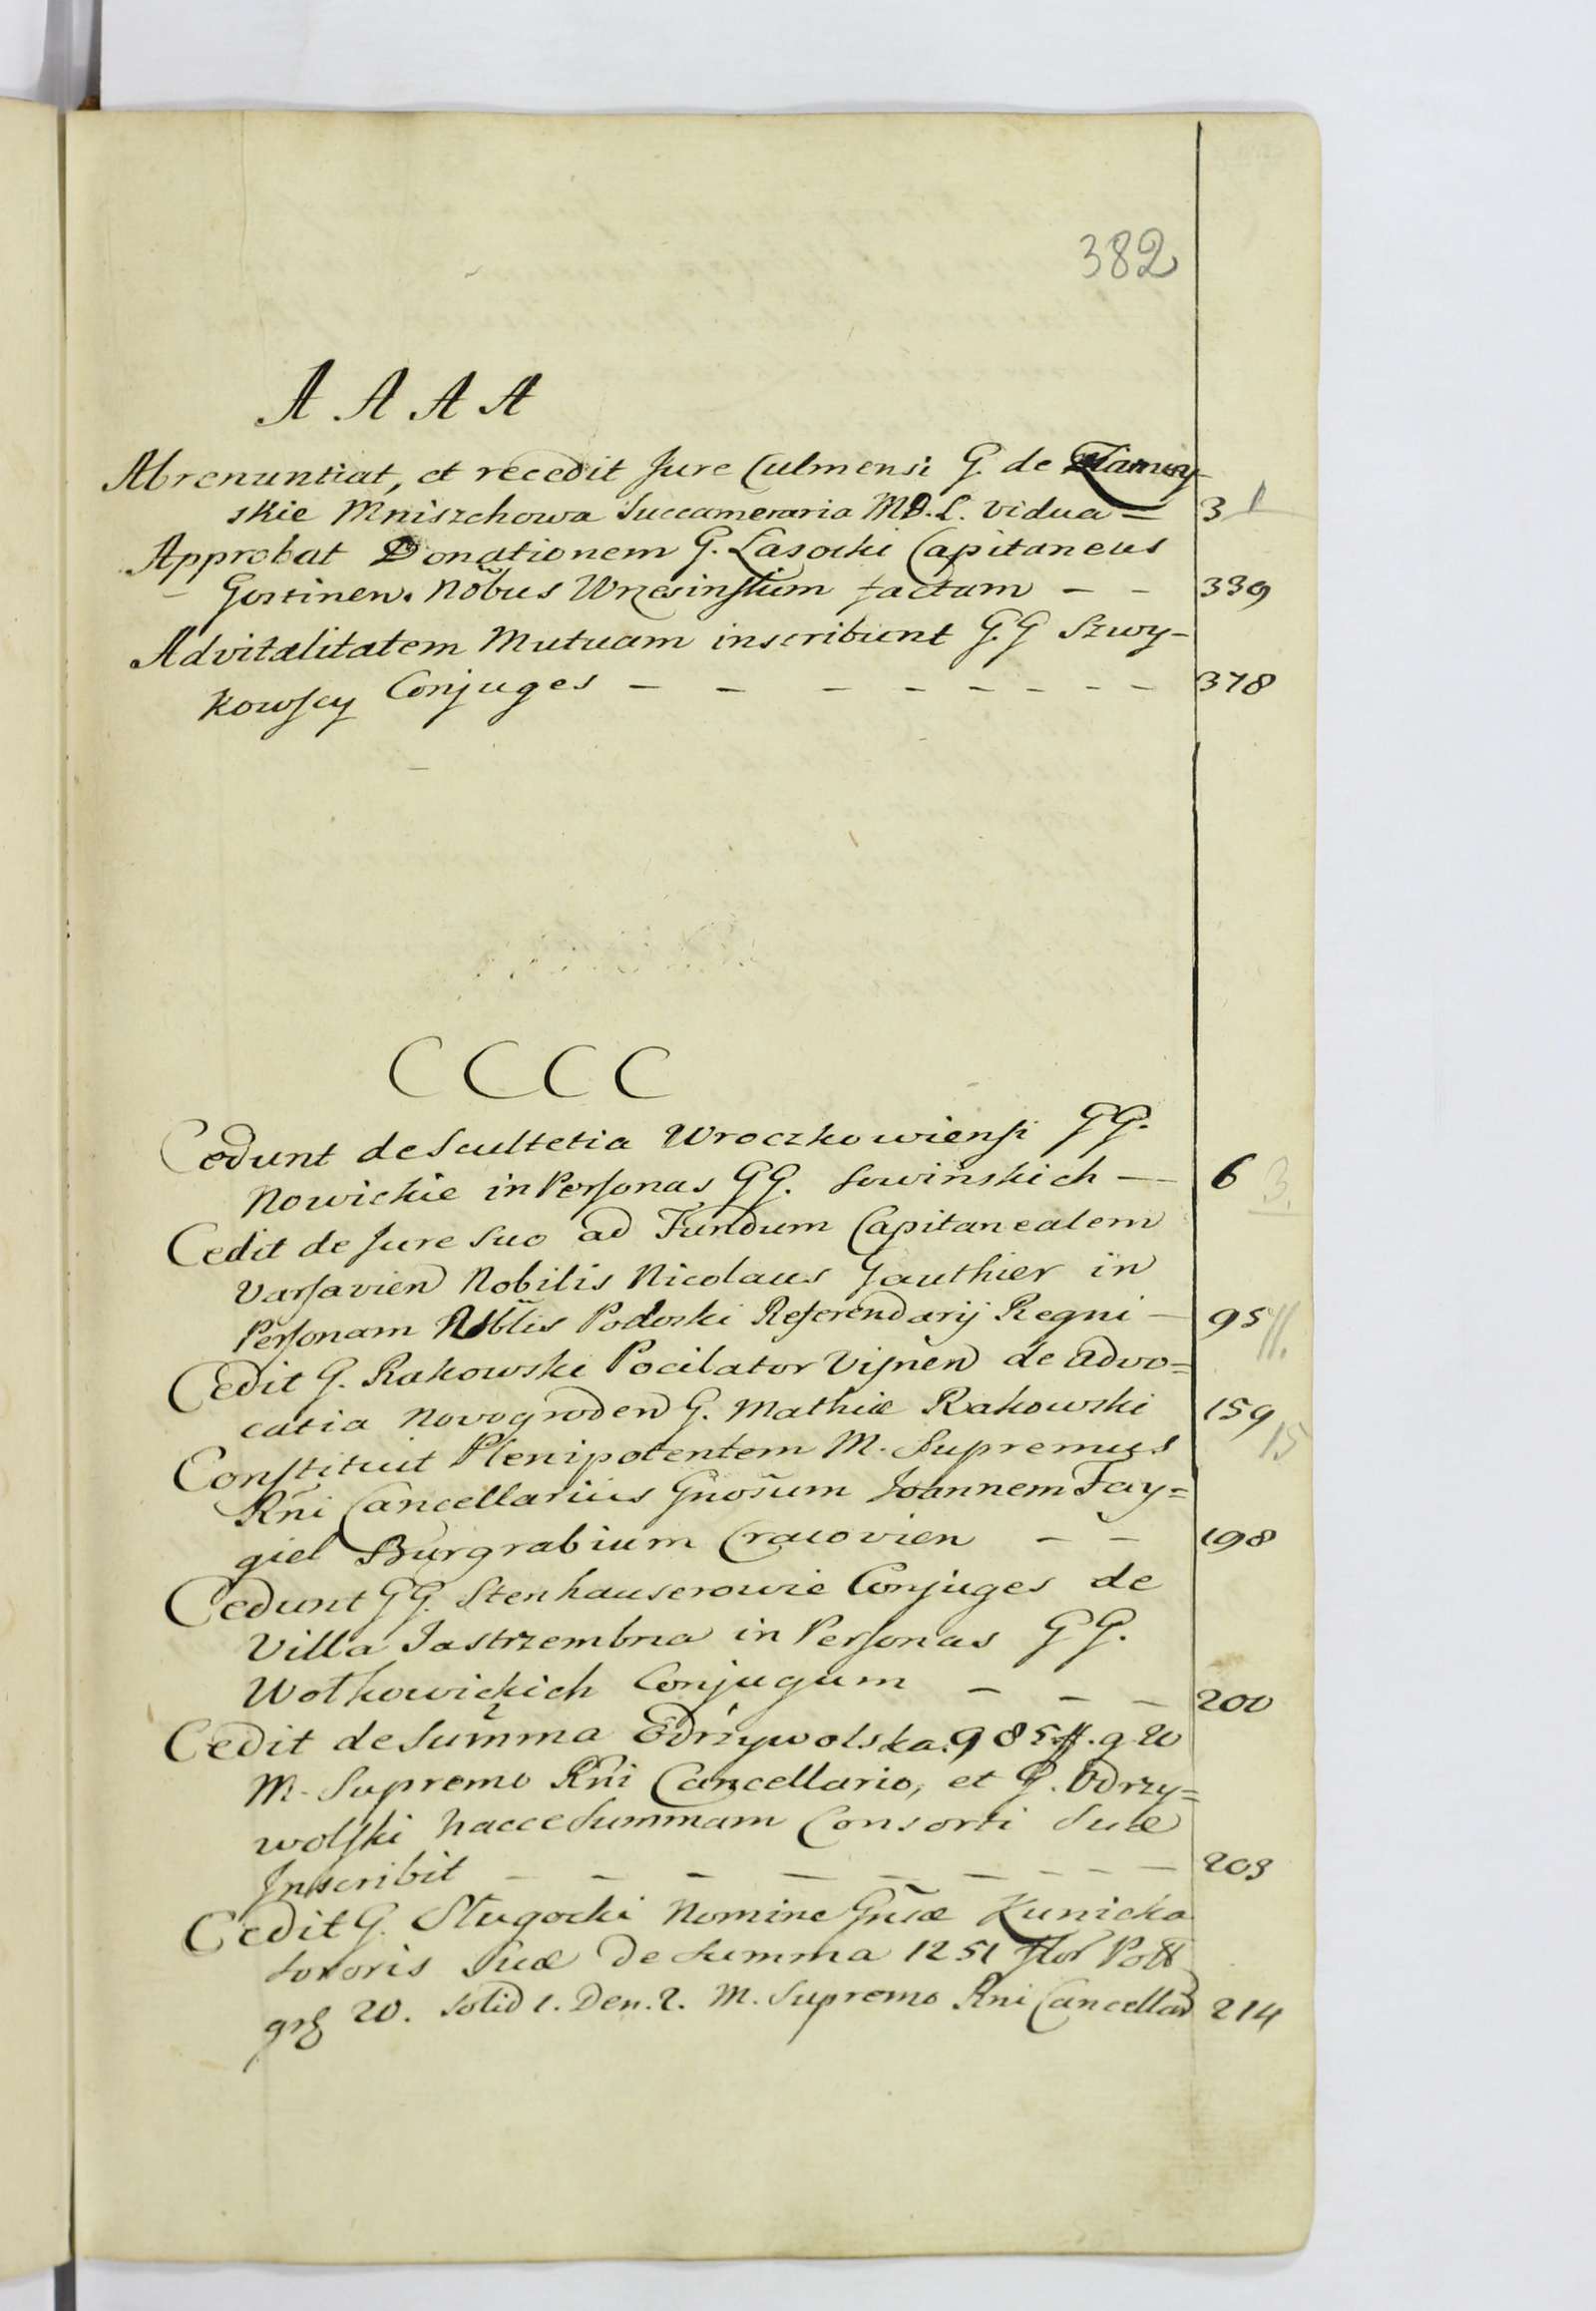 382
A A A A
Abrenuntiat, et recedit Jure Culmensi G. de
skie Mniszchowa Succameraria M.D.L. vidua = 3 1
Approbat Donationem G. Lasocki Capitaneus
Gostinen. Nõbus Wrzesinskim factam - - 339
Advitalitatem Mutuam inscribunt GG Szwy-
kowscy Conjuges - - - - - - - - 378
C C C C
Cedunt de Scultetia Wroczkowiensi GG.
Nowickie in Personas GG. Sowinskich - 6 3.
Cedit de Jure Suo ad Fundum Capitanealem
Varsavien Nobilis Nicolaus Gauthier in
Personam Podoski Referendarij Regni - 95 11.
Cedit G. Rakowski Pocilator Visnen de Advo=
catia Novogroden G. Mathiæ Rakowski 159 15
Constituit Plenipotentem M. Supremus
Rñi Cancellarius Gñosum Joannem Fay=
giel Burgrabium Cracovien - - 198
Cedunt GG. Stenhauserowie Conjuges de
Villa Jastrzembna in Personas GG.
Wołkowickich Conjugum - - - 200
Cedit de Summa Odrzywolska 985 ff. g 20
M. Supremo Rñi Cancellario, et G. Odrzy=
wolski hacce Summam Consorti Suæ
Inscribit - - - - - - - - - 203
Cedit G. Sługocki Nomine Gñsæ Kunicka
Sororis Suæ de Summa 1251 flor Poll
grs 20. Solid 1. Den. 2. M. Supremo Rñi Cancellar 214